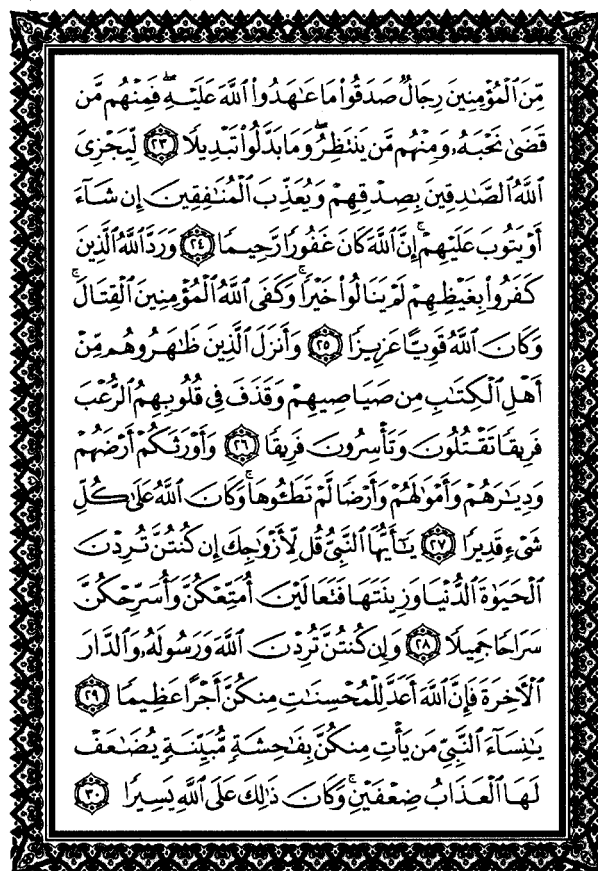 مِّنَ ٱلْمُؤْمِنِينَ رِجَالٌ صَدَقُوا۟ مَا عَـٰهَدُوا۟ ٱللَّهَ عَلَيْهِ ۖ فَمِنْهُم مَّن
قَضَىٰ نَحْبَهُۥ وَمِنْهُم مَّن يَنتَظِرُ ۖ وَمَا بَدَّلُوا۟ تَبْدِيلًا ٢٣ لِّيَجْزِىَ
ٱللَّهُ ٱلصَّـٰدِقِينَ بِصِدْقِهِمْ وَيُعَذِّبَ ٱلْمُنَـٰفِقِينَ إِن شَآءَ
أَوْ يَتُوبَ عَلَيْهِمْ ۚ إِنَّ ٱللَّهَ كَانَ غَفُورًا رَّحِيمًا ٢٤ وَرَدَّ ٱللَّهُ ٱلَّذِينَ
كَفَرُوا۟ بِغَيْظِهِمْ لَمْ يَنَالُوا۟ خَيْرًا ۚ وَكَفَى ٱللَّهُ ٱلْمُؤْمِنِينَ ٱلْقِتَالَ ۚ
وَكَانَ ٱللَّهُ قَوِيًّا عَزِيزًا ٢٥ وَأَنزَلَ ٱلَّذِينَ ظَـٰهَرُوهُم مِّنْ
أَهْلِ ٱلْكِتَـٰبِ مِن صَيَاصِيهِمْ وَقَذَفَ فِى قُلُوبِهِمُ ٱلرُّعْبَ
فَرِيقًا تَقْتُلُونَ وَتَأْسِرُونَ فَرِيقًا ٢٦ وَأَوْرَثَكُمْ أَرْضَهُمْ
وَدِيَـٰرَهُمْ وَأَمْوَٰلَهُمْ وَأَرْضًا لَّمْ تَطَـُٔوهَا ۚ وَكَانَ ٱللَّهُ عَلَىٰ كُلِّ
شَىْءٍ قَدِيرًا ٢٧ يَـٰٓأَيُّهَا ٱلنَّبِىُّ قُل لِّأَزْوَٰجِكَ إِن كُنتُنَّ تُرِدْنَ
ٱلْحَيَوٰةَ ٱلدُّنْيَا وَزِينَتَهَا فَتَعَالَيْنَ أُمَتِّعْكُنَّ وَأُسَرِّحْكُنَّ
سَرَاحًا جَمِيلًا ٢٨ وَإِن كُنتُنَّ تُرِدْنَ ٱللَّهَ وَرَسُولَهُۥ وَٱلدَّارَ
ٱلْـَٔاخِرَةَ فَإِنَّ ٱللَّهَ أَعَدَّ لِلْمُحْسِنَـٰتِ مِنكُنَّ أَجْرًا عَظِيمًا ٢٩
يَـٰنِسَآءَ ٱلنَّبِىِّ مَن يَأْتِ مِنكُنَّ بِفَـٰحِشَةٍ مُّبَيِّنَةٍ يُضَـٰعَفْ
لَهَا ٱلْعَذَابُ ضِعْفَيْنِ ۚ وَكَانَ ذَٰلِكَ عَلَى ٱللَّهِ يَسِيرًا ٣٠